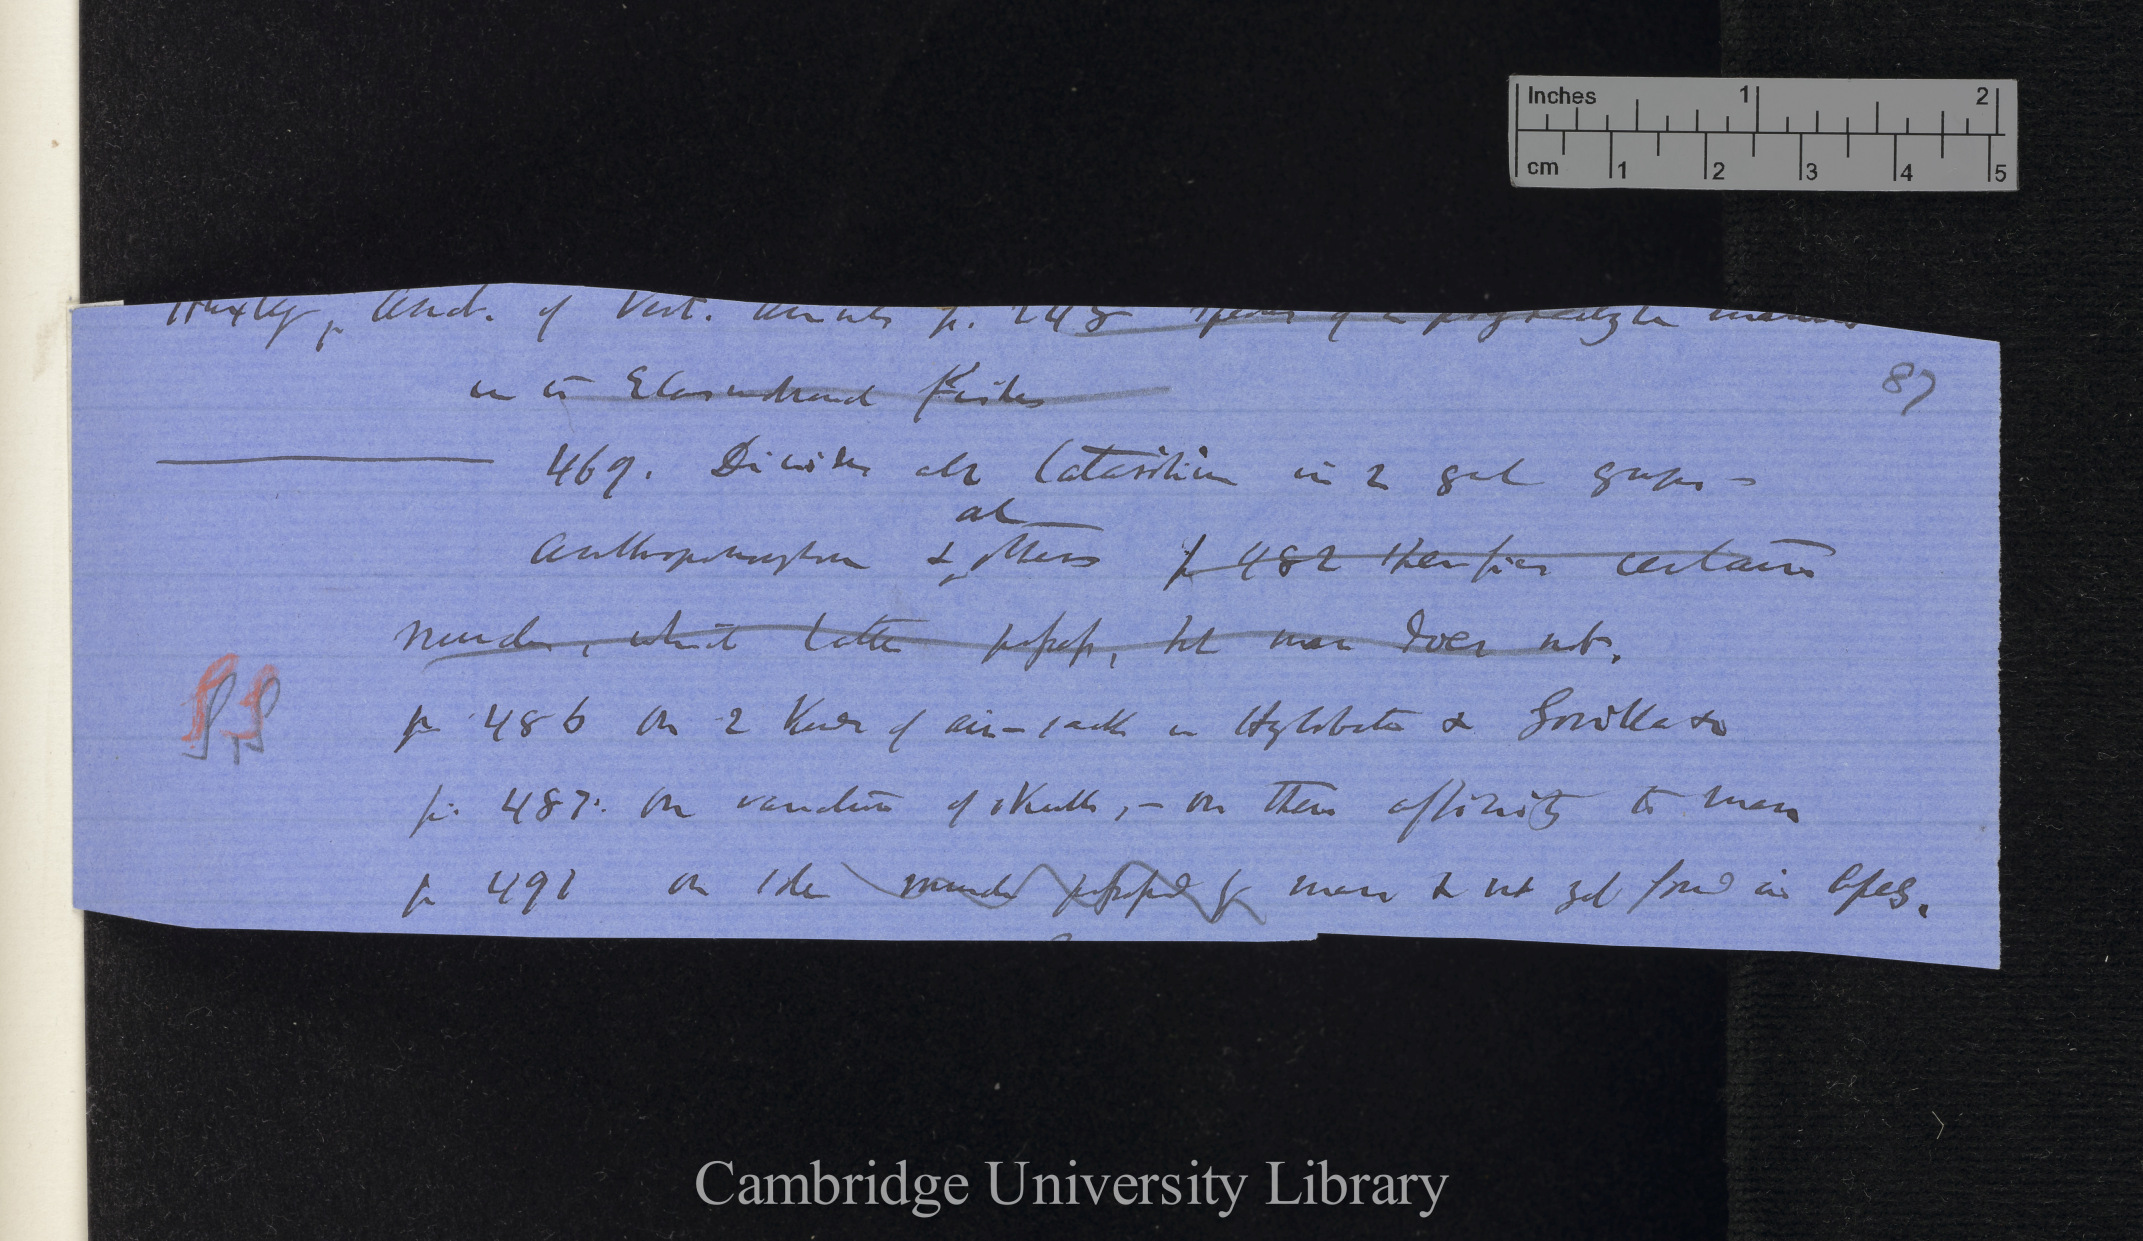 Inches 1 2
cm 1 2 3 4 5
Huxley, Anat. of Vert. Animals p. 248 Speaks of
in Elasmobranch Fishes
87
469. Divides all Catarhine in 2 groups –
all
Anthropomorpha & others p 482 specifies certain
muscles, which latter possess, but man does not.
p 486 on 2 kinds of air-sacks in Hylobates & Gorilla &
p. 487. on variation of skulls, – on their affinity to man
p 491 on muscles possessed by man & not yet found in Apes.
Cambridge University Library